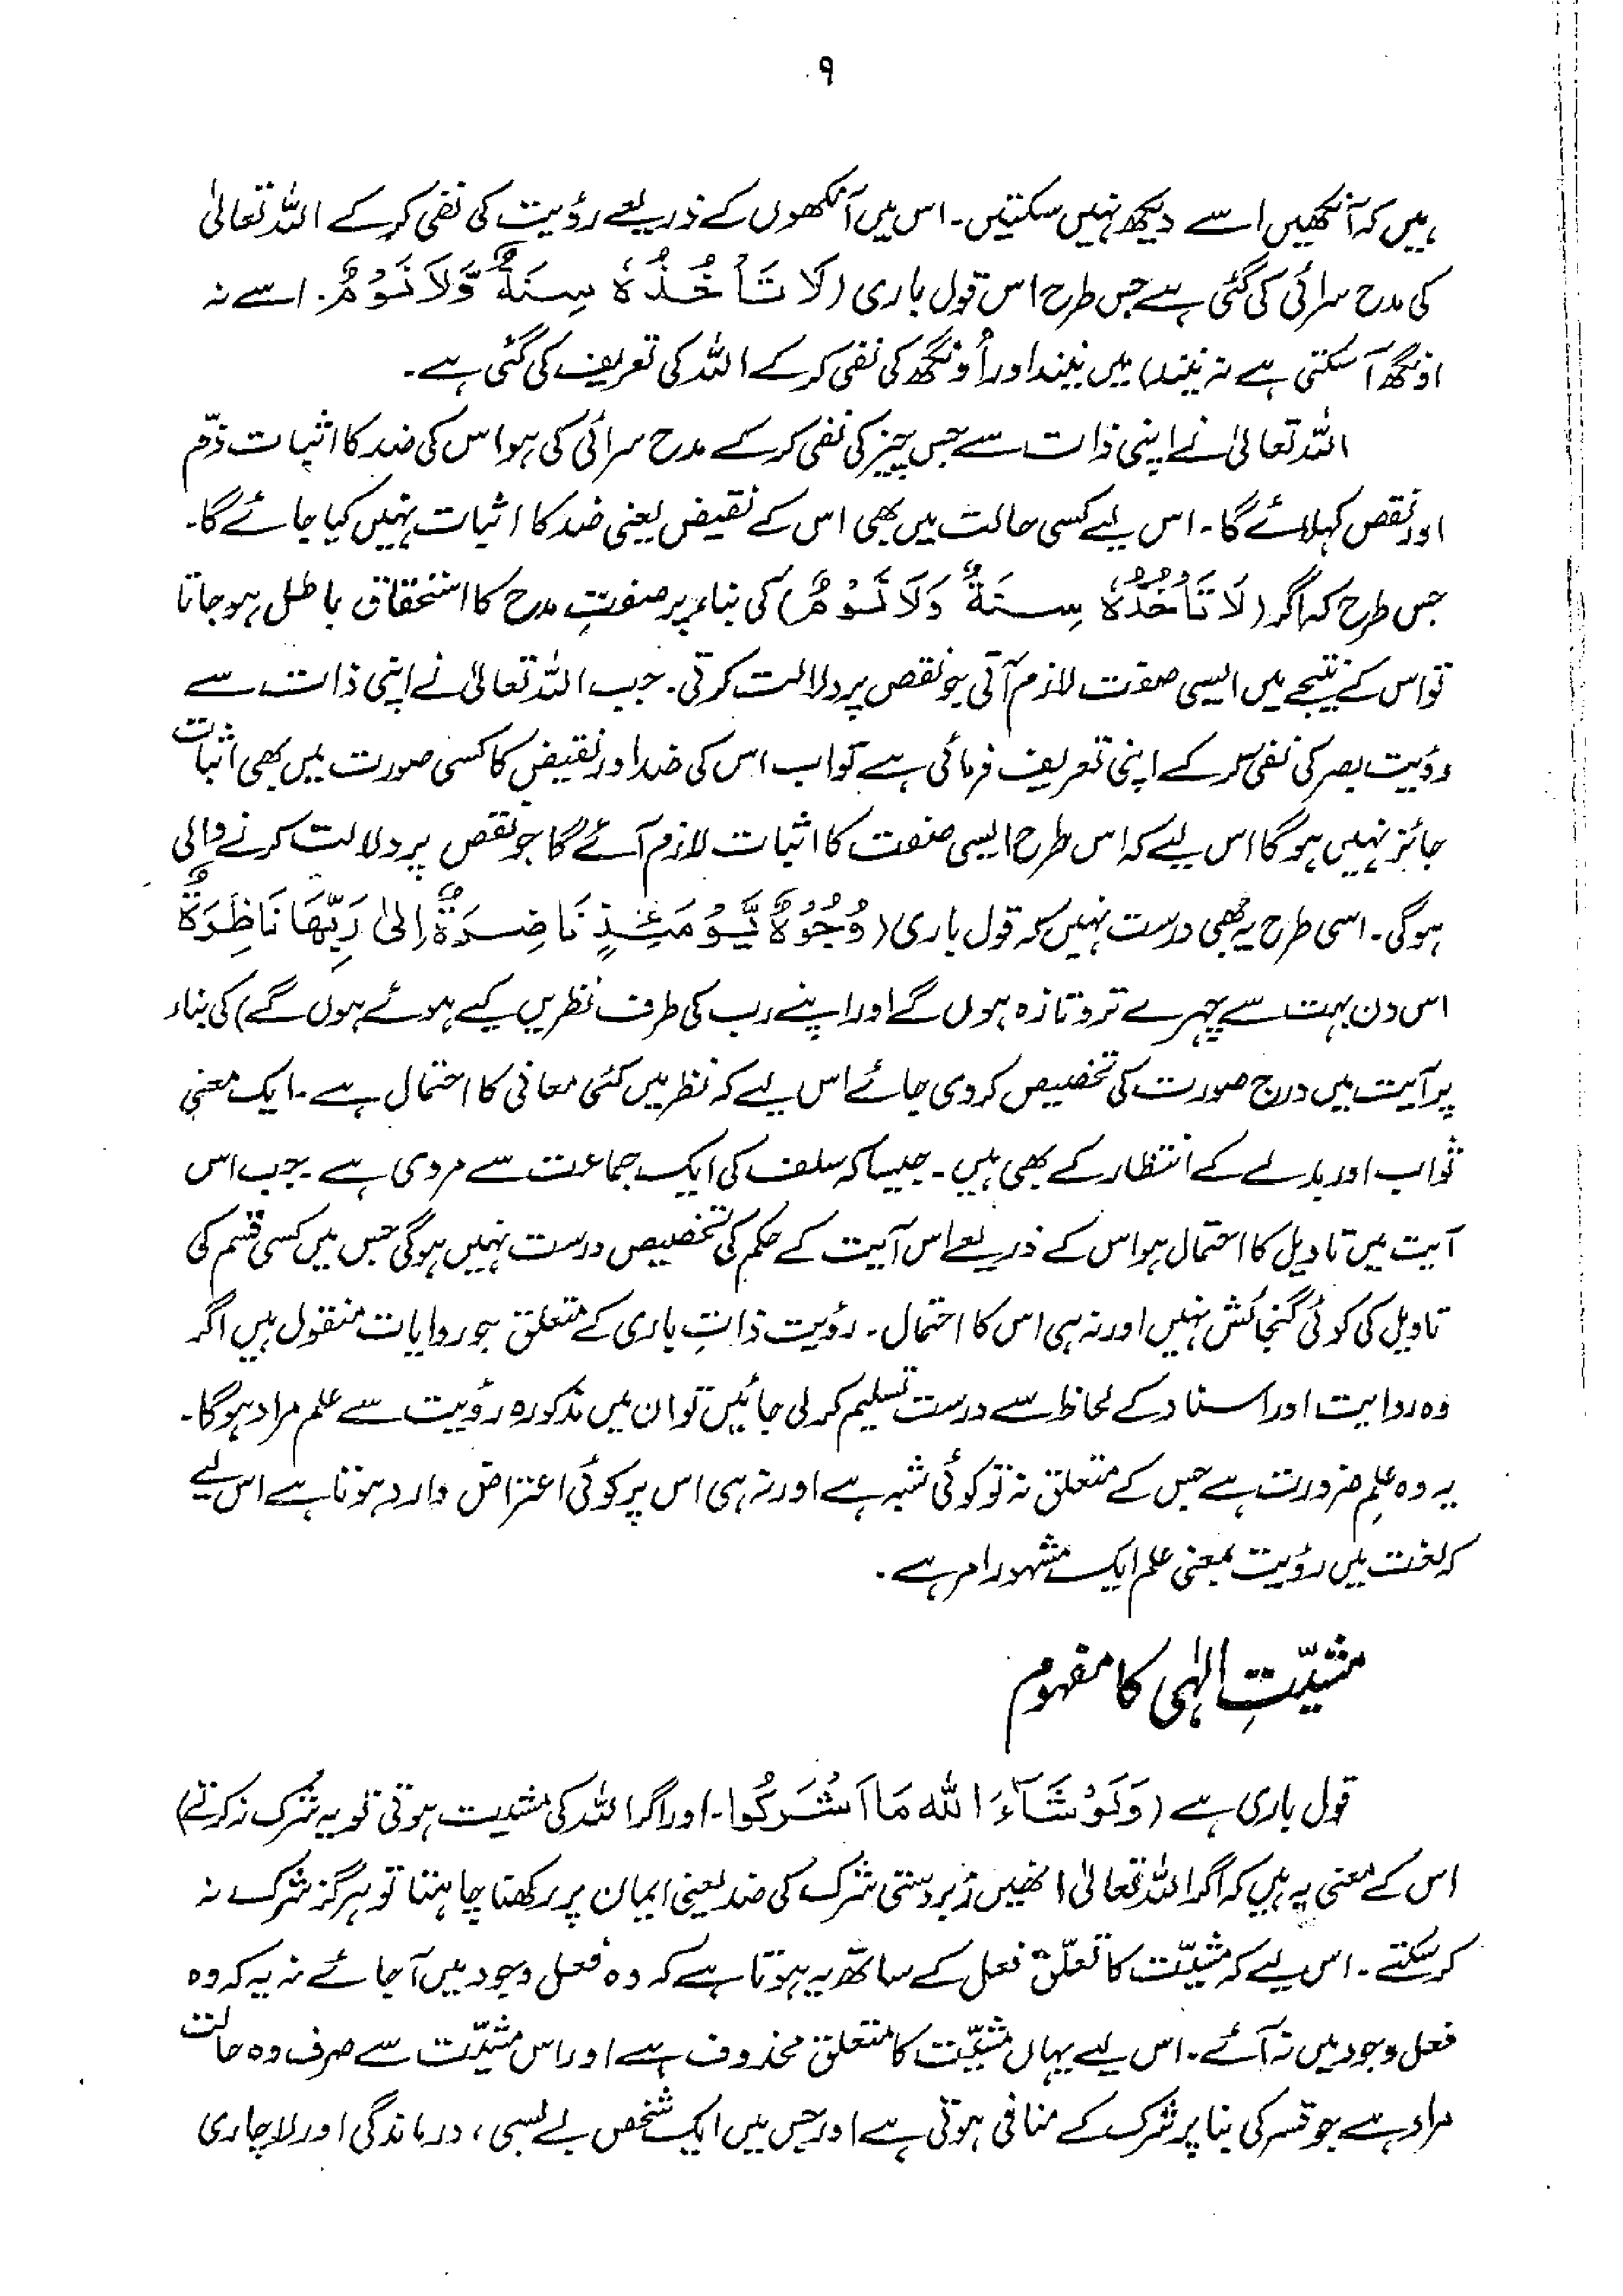 ۹
ہیں کہ آنکھیں اسے دیکھ نہیں سکتیں۔ اس میں آنکھوں کے ذریعے رؤیت کی نفی کرکے اللہ تعالیٰ
کی مدح سرائی کی گئی ہے جس طرح اس قول باری (لَا تَأْخُذُهٗ سِنَةٌ وَّلَا نَوْمٌ. اسے نہ
اونگھ آسکتی ہے نہ نیند) میں نیند اور اُونگھ کی نفی کرکے اللہ کی تعریف کی گئی ہے۔
اللہ تعالیٰ نے اپنی ذات سے جس چیز کی نفی کرکے مدح سرائی کی ہو اس کی ضد کا اثبات ذمّ
اور نقص کہلائے گا۔ اس لیے کسی حالت میں بھی اس کے نقیض یعنی ضد کا اثبات نہیں کیا جائے گا۔
جس طرح کہ اگر (لَا تَأْخُذُهٗ سِنَةٌ وَلَا نَوْمٌ) کی بناء پر صفتِ مدح کا استحقاق باطل ہو جاتا
تو اس کے نتیجے میں ایسی صفت لازم آتی جو نقص پر دلالت کرتی۔ جب اللہ تعالیٰ نے اپنی ذات سے
رؤیت بصر کی نفی کرکے اپنی تعریف فرمائی ہے تو اب اس کی ضد اور نقیض کا کسی صورت میں بھی اثبات
جائز نہیں ہوگا اس لیے کہ اس طرح ایسی صفت کا اثبات لازم آئے گا جو نقص پر دلالت کرنے والی
ہوگی۔ اسی طرح یہ بھی درست نہیں کہ قول باری (وُجُوْهٌ يَّوْمَئِذٍ نَاضِرَةٌ اِلىٰ رَبِّهَا نَاظِرَةٌ
اس دن بہت سے چہرے تروتازہ ہوں گے اور اپنے رب کی طرف نظریں کیے ہوئے ہوں گے) کی بناء
پر آیت میں درج صورت کی تخصیص کردی جائے اس لیے کہ نظر میں کئی معانی کا احتمال ہے۔ ایک معنی
ثواب اور بدلے کے انتظار کے بھی ہیں۔ جیسا کہ سلف کی ایک جماعت سے مروی ہے۔ جب اس
آیت میں تاویل کا احتمال ہو اس کے ذریعے اس آیت کے حکم کی تخصیص درست نہیں ہوگی جس میں کسی قسم کی
تاویل کی کوئی گنجائش نہیں اور نہ ہی اس کا احتمال۔ رؤیت ذاتِ باری کے متعلق جو روایات منقول ہیں اگر
وہ روایت اور اسناد کے لحاظ سے درست تسلیم کرلی جائیں تو ان میں مذکورہ رؤیت سے علم مراد ہوگا۔
یہ وہ علمِ ضرورت ہے جس کے متعلق نہ تو کوئی شبہ ہے اور نہ ہی اس پر کوئی اعتراض وارد ہوتا ہے اس لیے
کہ لغت میں رؤیت بمعنی علم ایک مشہور امر ہے۔
مشیّتِ الٰہی کا مفہوم
قول باری ہے (وَلَوْ شَآءَ اللّٰہ مَا اَشْرَكُوا۔ اور اگر اللہ کی مشیت ہوتی تو یہ شرک نہ کرتے)
اس کے معنی یہ ہیں کہ اگر اللہ تعالیٰ انھیں زبردستی شرک کی ضد یعنی ایمان پر رکھنا چاہتا تو ہرگز شرک نہ
کرسکتے۔ اس لیے کہ مشیّت کا تعلّق فعل کے ساتھ یہ ہوتا ہے کہ وہ فعل وجود میں آجائے نہ یہ کہ وہ
فعل وجود میں نہ آئے۔ اس لیے یہاں مشیّت کا متعلق محذوف ہے اور اس مشیّت سے صرف وہ حالت
مراد ہے جو قسر کی بنا پر شرک کے منافی ہوتی ہے اور جس میں ایک شخص بے بسی، درماندگی اور لاچاری